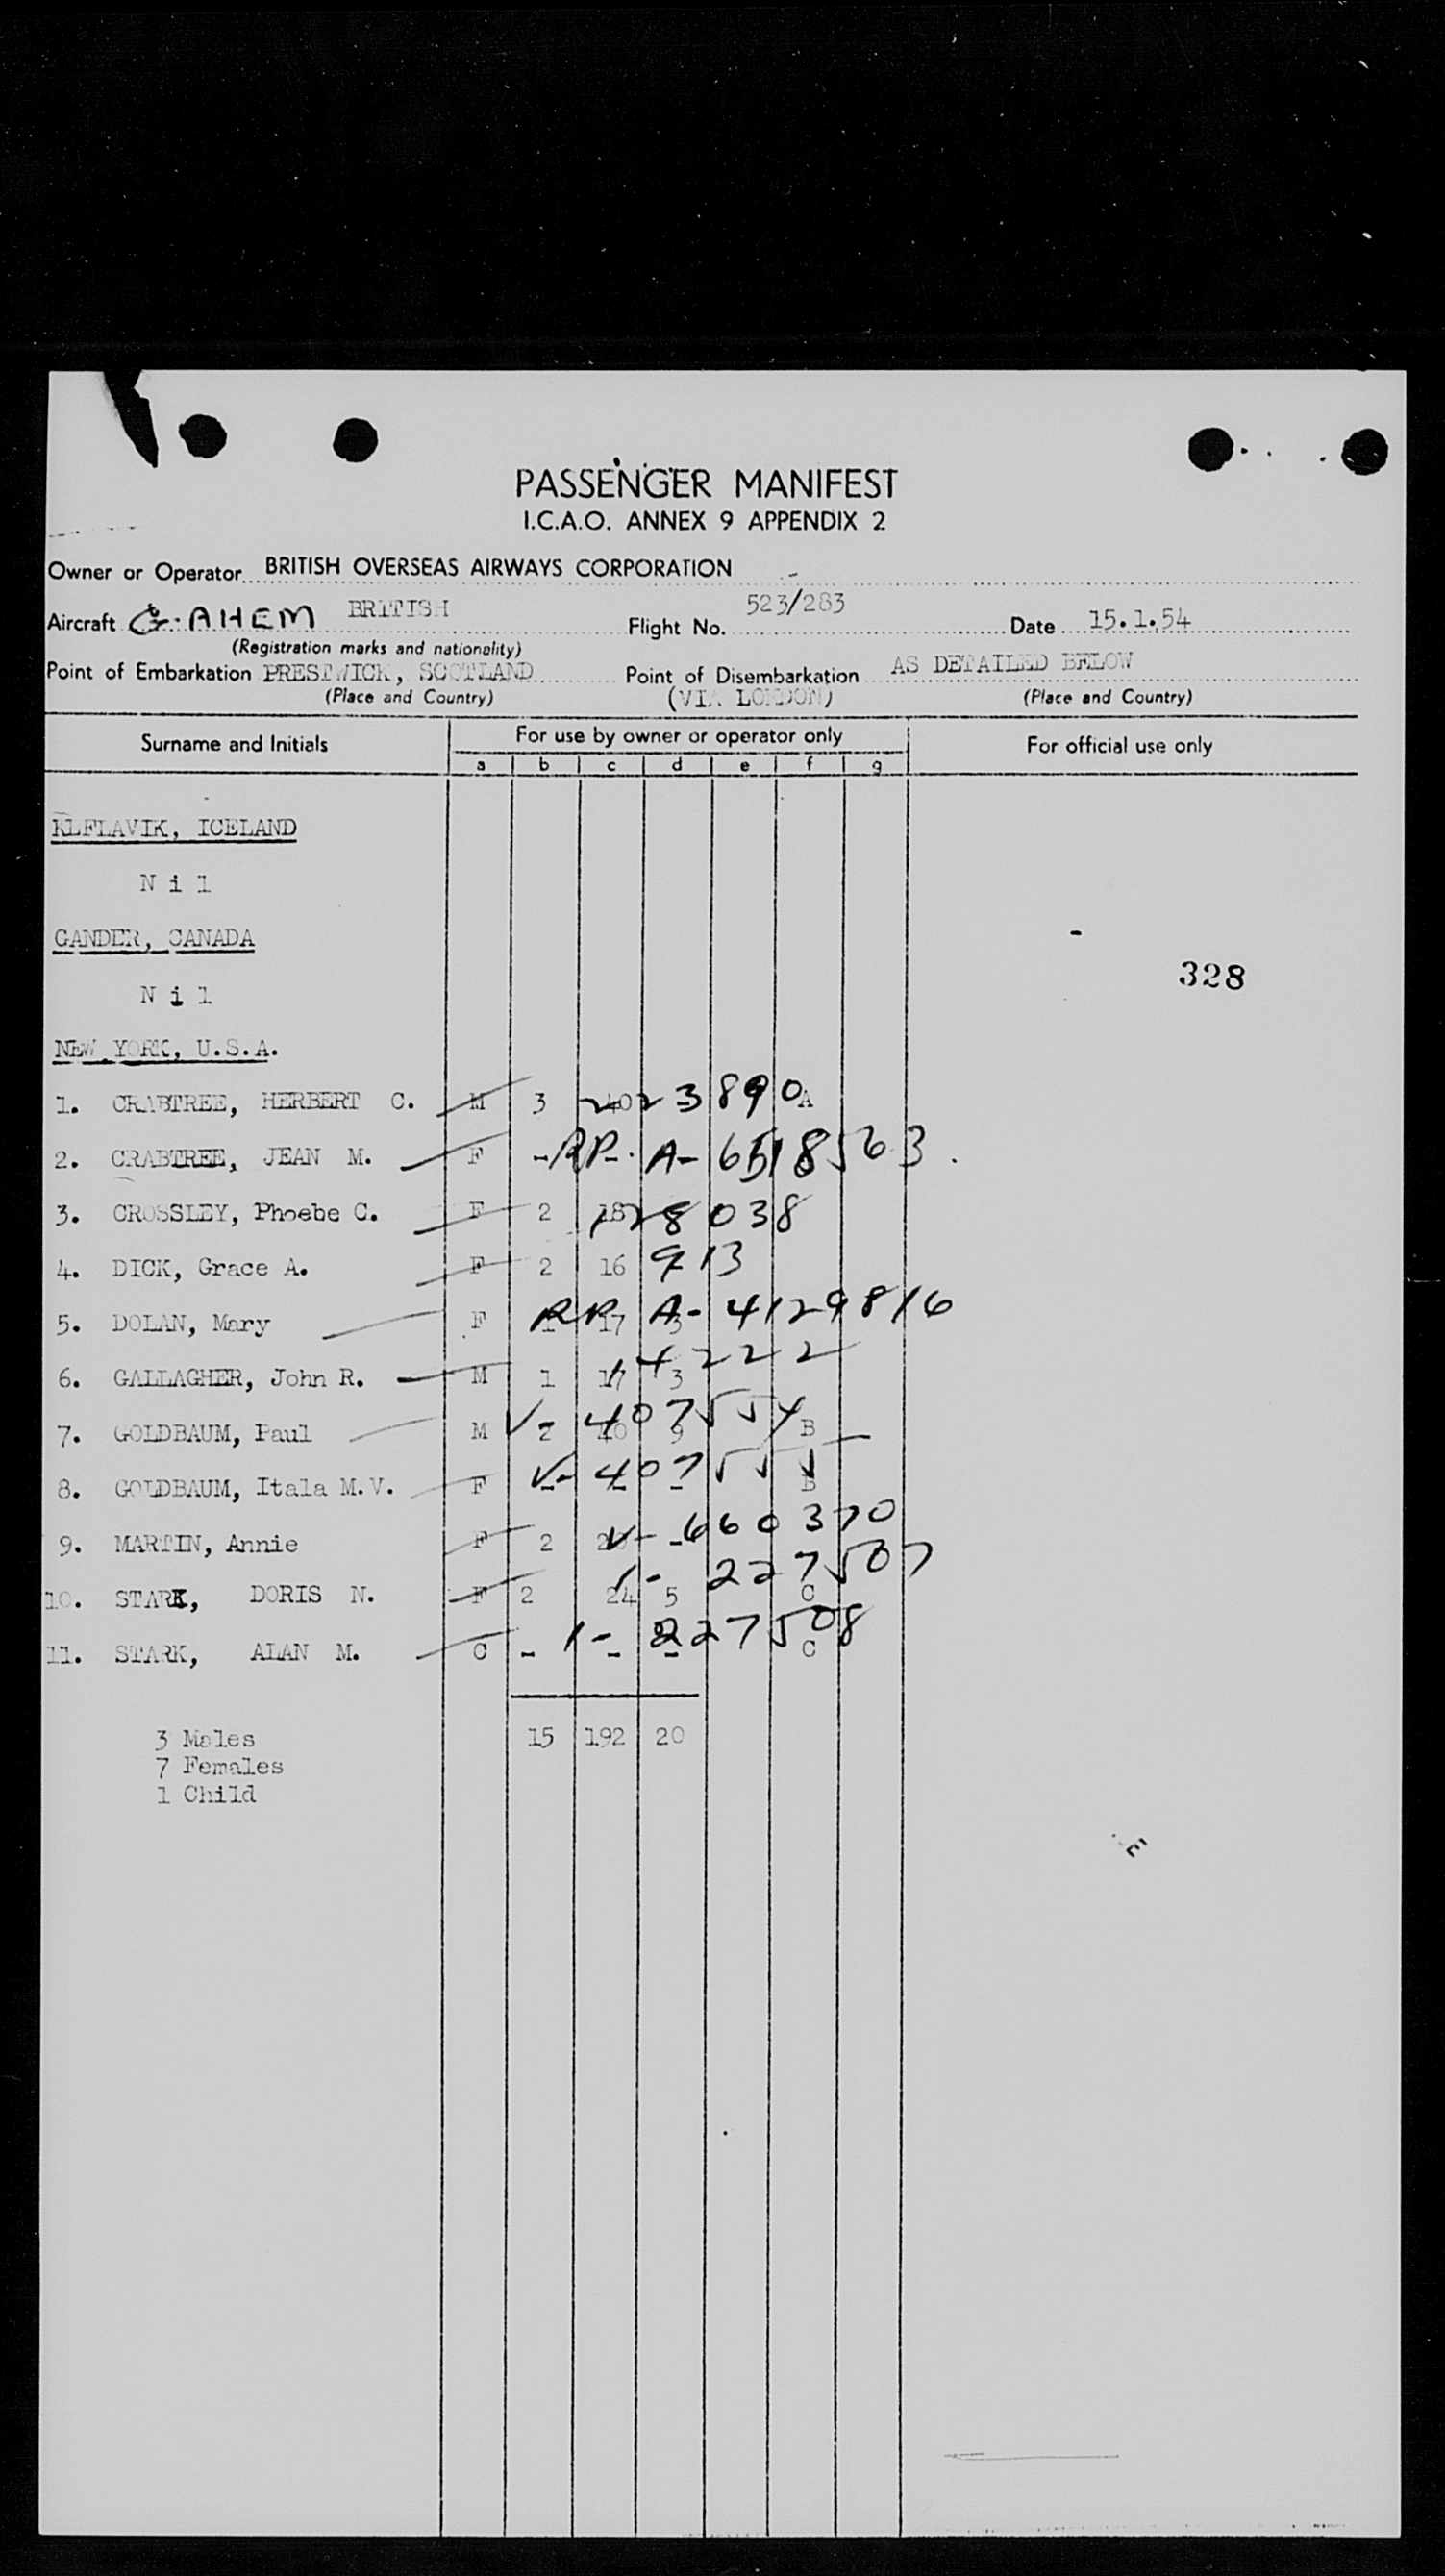 PASSENGER MANIFEST
I.C.A.O. ANNEX 9 APPENDIX 2
Owner or Operator BRITISH OVERSEAS AIRWAYS CORPORATION
Aircraft G-AHEM BRITISH Flight No. 523/283 Date 15.1.54
(Registration marks and nationality)
Point of Embarkation PRESTWICK, SCOTLAND Point of Disembarkation AS DETAILED BELOW
(Place and Country) (VIA LONDON) (Place and Country)
Surname and Initials For use by owner or operator only For official use only
a b c d e f g
KEFLAVIK, ICELAND
N i l
GANDER, CANADA
328
N i l
NEW YORK, U.S.A.
1. CRABTREE, HERBERT C. M 3 40 - A 223890
2. CRABTREE, JEAN M. F - - RP. A-6518563
3. CROSSLEY, Phoebe C. F 2 18 128038
4. DICK, Grace A. F 2 16 913
5. DOLAN, Mary F 1 17 3 RP A-4129816
6. GALLAGHER, John R. M 1 17 3 14222
7. GOLDBAUM, Paul M 2 40 9 B V-407554
8. GOLDBAUM, Itala M.V. F - - - B V-407555
9. MARTIN, Annie F 2 20 - V-660370
10. STARK, DORIS N. F 2 24 5 C 1-227507
11. STARK, ALAN M. C - - - C 1-227508
3 Males 15 192 20
7 Females
1 Child